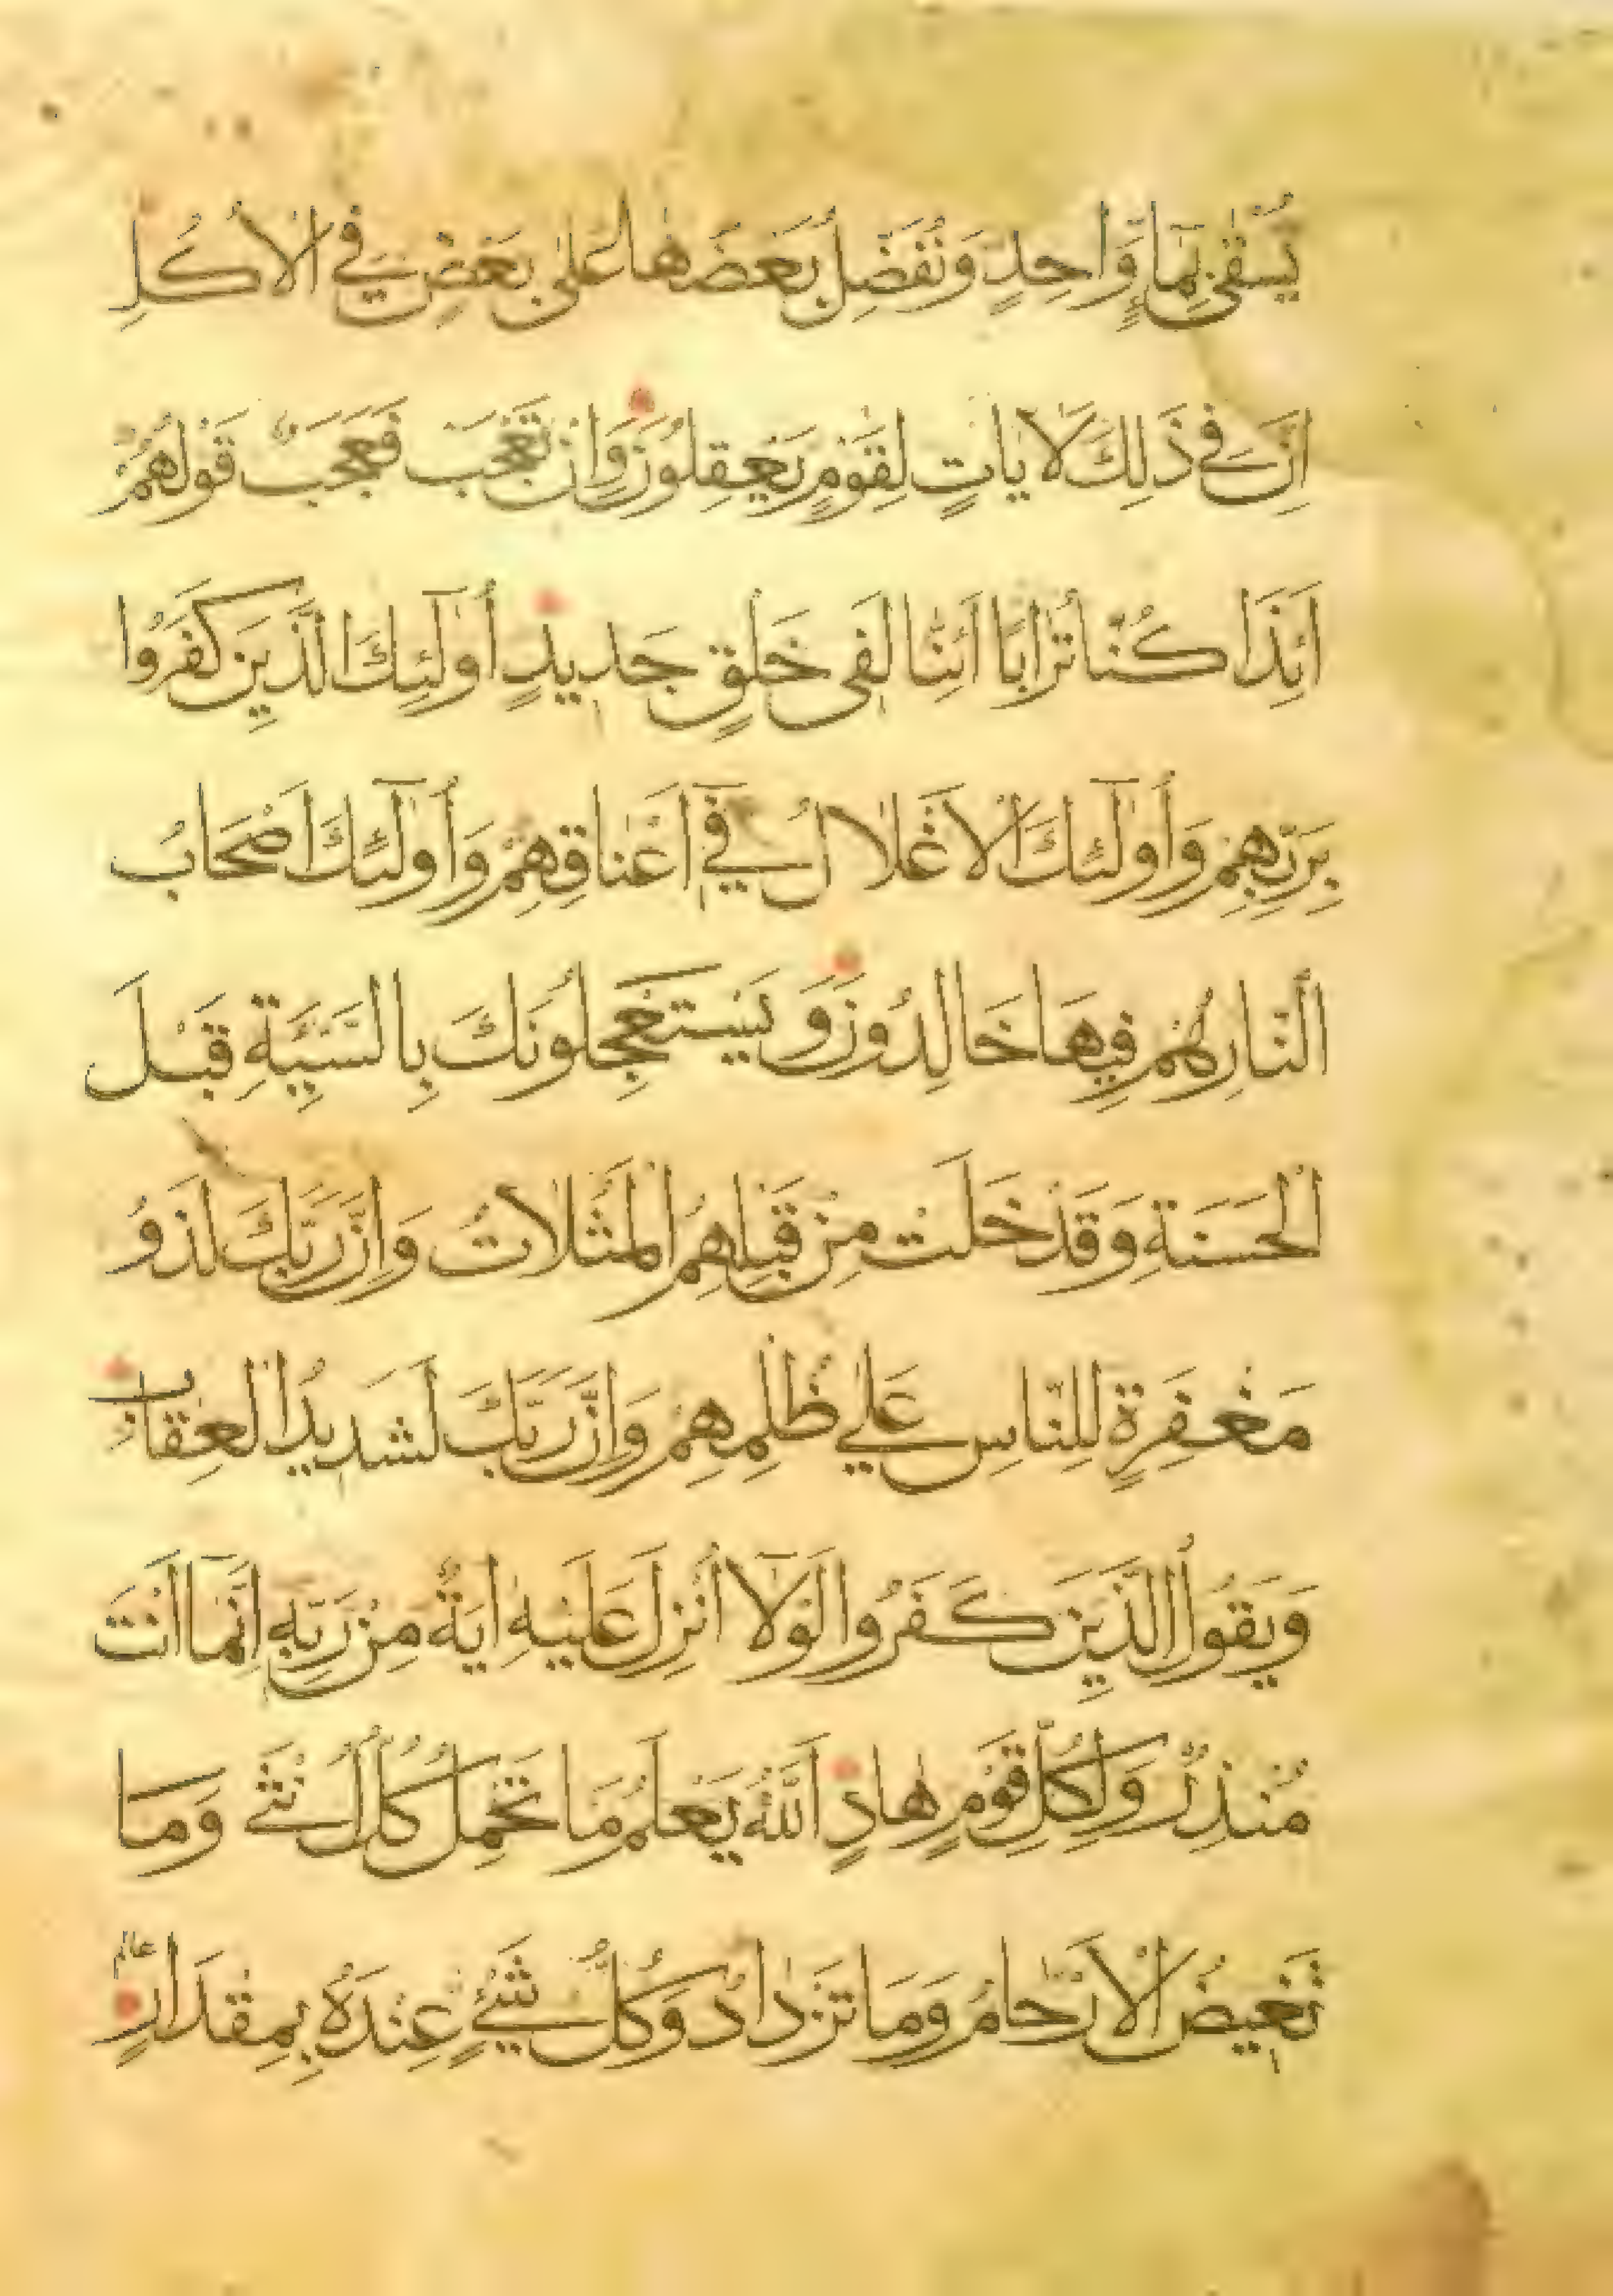 يُسْقٰى بِمَآءٍ وَّاحِدٍ وَنُفَضِّلُ بَعْضَهَا عَلٰى بَعْضٍ فِي الْاُكُلِ
اِنَّ فِي ذٰلِكَ لَاٰيَاتٍ لِقَوْمٍ يَعْقِلُونَ وَاِنْ تَعْجَبْ فَعَجَبٌ قَوْلُهُمْ
اَئِذَا كُنَّا تُرَابًا اَئِنَّا لَفِى خَلْقٍ جَدِيدٍ اُولٰٓئِكَ الَّذِينَ كَفَرُوا
بِرَبِّهِمْ وَاُولٰٓئِكَ الْاَغْلَالُ فِىٓ اَعْنَاقِهِمْ وَاُولٰٓئِكَ اَصْحَابُ
النَّارِ هُمْ فِيهَا خَالِدُونَ وَيَسْتَعْجِلُونَكَ بِالسَّيِّئَةِ قَبْلَ
الْحَسَنَةِ وَقَدْ خَلَتْ مِنْ قَبْلِهِمُ الْمَثُلَاتُ وَاِنَّ رَبَّكَ لَذُو
مَغْفِرَةٍ لِلنَّاسِ عَلٰي ظُلْمِهِمْ وَاِنَّ رَبَّكَ لَشَدِيدُ الْعِقَابِ
وَيَقُولُ الَّذِينَ كَفَرُوا لَوْلَآ اُنْزِلَ عَلَيْهِ اٰيَةٌ مِنْ رَبِّهِ اِنَّمَآ اَنْتَ
مُنْذِرٌ وَلِكُلِّ قَوْمٍ هَادٍ اَللّٰهُ يَعْلَمُ مَا تَحْمِلُ كُلُّ اُنْثٰي وَمَا
تَغِيضُ الْاَرْحَامُ وَمَا تَزْدَادُ وَكُلُّ شَيْءٍ عِنْدَهُ بِمِقْدَارٍ عالم